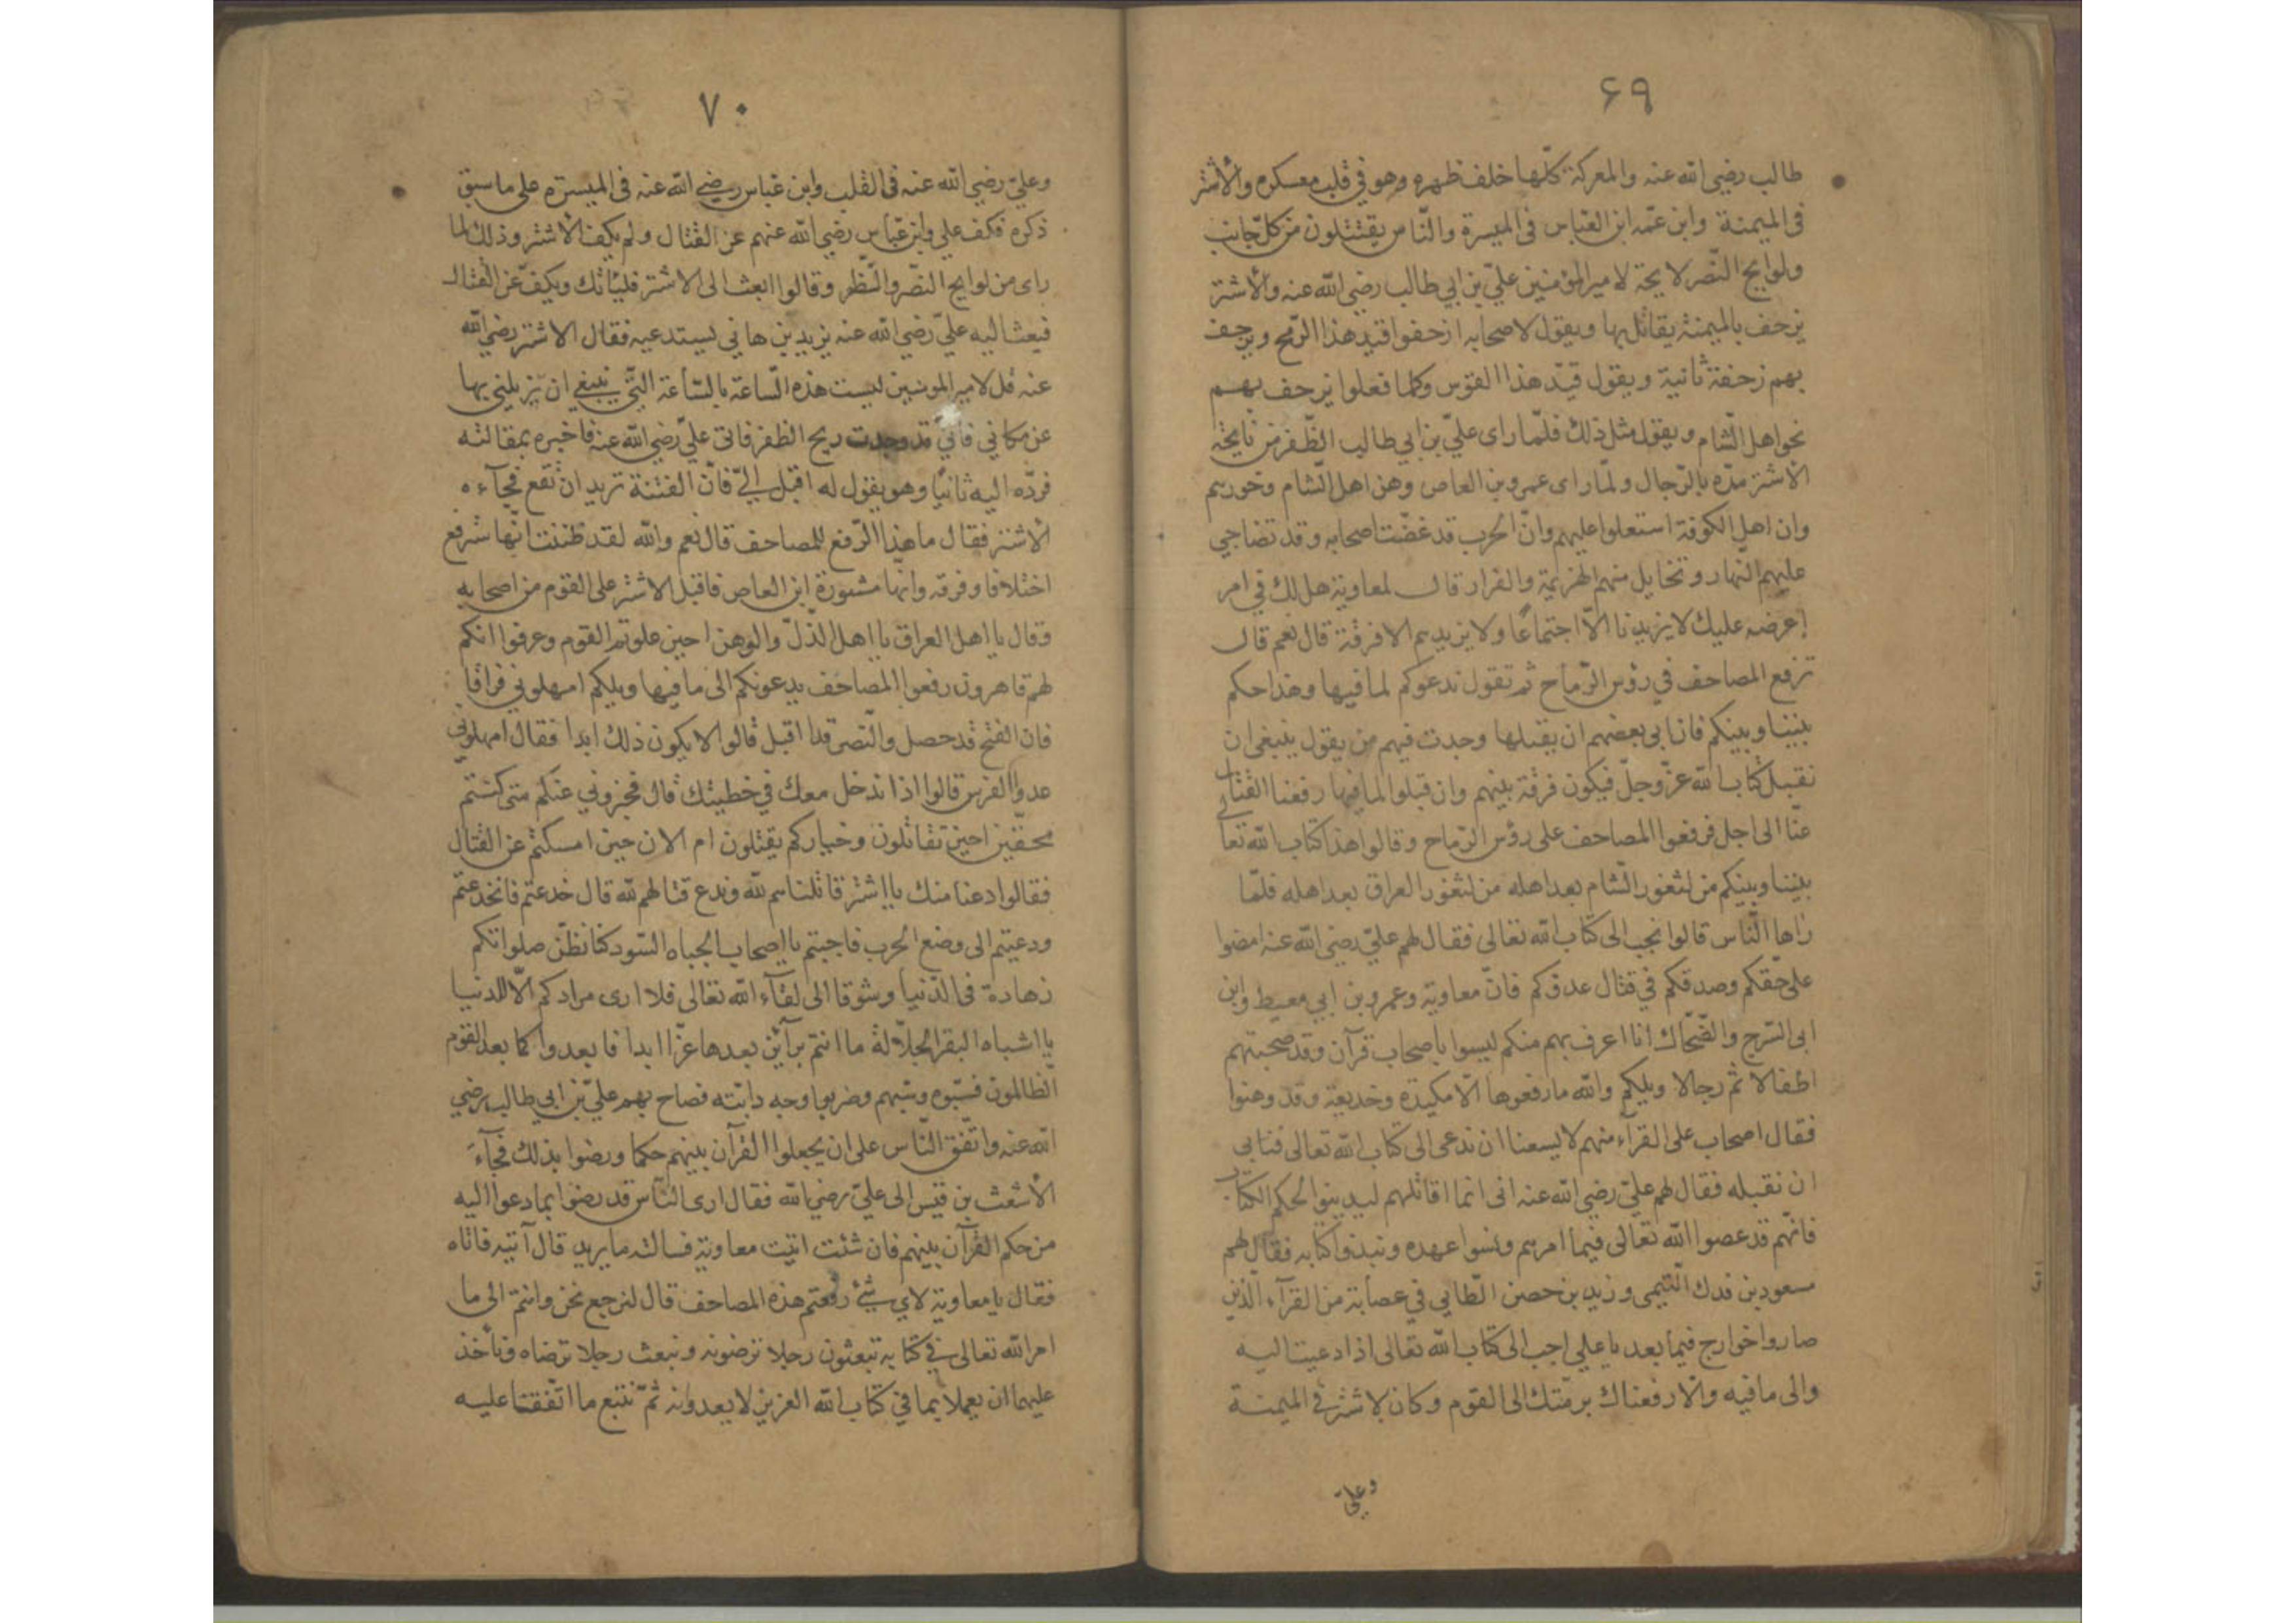 ٦٩
طالب رضي الله عنه والمعركة كلّها خلف ظهره وهو في قلب معسكره والأشتر
فى الميمنة وابن عمّه ابن العباس فى الميسرة والنّاس يقتتلون من كلّ جانب
ولوايح النّصر لايحة لامير المؤمنين عليّ بن ابي طالب رضي الله عنه والأشتر
يزحف بالميمنة يقاتل بها ويقول لاصحابه ازحفوا قيد هذا الرّمح ويزحف
بهم زحفة ثانية ويقول قيد هذا القوس وكلما فعلوا يزحف بهم
نحو اهل الشام ويقول مثل ذلك فلمّا راى عليّ بن ابي طالب الظّفر من ناحية
الأشتر مدّه بالرّجال ولمّا راى عمرو بن العاص وهن اهل الشام وخورهم
وان اهل الكوفة استعلوا عليهم وانّ الحرب قد غضّت اصحابه وقد تضاحي
عليهم النّهار وتخايل منهم الهزيمة والفرار قال لمعاوية هل لك في امر
اعرضه عليك لا يزيدنا الّا اجتماعًا ولا يزيدهم الا فرقة قال نعم قال
ترفع المصاحف في رؤس الرّماح ثم تقول ندعوكم لما فيها وهذا حكم
بيننا وبينكم فان ابى بعضهم ان يقبلها وجدت فيهم من يقول ينبغى ان
نقبل كتاب الله عزّ وجلّ فيكون فرقة بينهم وان قبلوا لما فيها رفعنا القتال
عنّا الى اجل فرفعوا المصاحف على رؤس الرّماح وقالوا هذا كتاب الله تعالى
بيننا وبينكم من لثغور الشّام بعد اهله من لثغور العراق بعد اهله فلمّا
راها النّاس قالوا نجيب الى كتاب الله تعالى فقال لهم عليّ رضي الله عنه امضوا
على حقّكم وصدقكم في قتال عدوّكم فانّ معاوية وعمرو بن ابي معيط وابن
ابى السّرح والضّحّاك انا اعرف بهم منكم ليسوا باصحاب قرآن وقد صحبتهم
اطفالا ثم رجالا ويلكم والله ما رفعوها الّا مكيدة وخديعة وقد وهنوا
فقال اصحاب على القرآء منهم لا يسعنا ان ندعى الى كتاب الله تعالى فنابى
ان نقبله فقال لهم عليّ رضي الله عنه انى انما اقاتلهم ليدينوا لحكم الكتاب
فانّهم قد عصوا الله تعالى فيما امرهم ونسوا عهده ونبذوا كتابه فقال لهم
مسعود بن فدك التّيمى وزيد بن حصن الطّايى في عصابة من القرآء الّذين
صاروا خوارج فيما بعد يا علي اجب الى كتاب الله تعالى اذا دعيت اليه
والى ما فيه والّا رفعناك برمّتك الى القوم وكان الاشتر فى الميمنة
وعليّ
٧٠
وعليّ رضي الله عنه فى القلب وابن عباس رضي الله عنه فى الميسرة على ما سبق
ذكره فكف علي وابن عبّاس رضي الله عنهم عن القتال ولم يكف الأشتر وذلك لما
راى من لوايح النصر والظفر وقالوا ابعث الى الاشتر فليأتك ويكفّ عن القتال
فبعث اليه عليّ رضي الله عنه يزيد بن هاني يستدعيه فقال الاشتر رضي الله
عنه قل لامير المومنين ليست هذه السّاعة بالسّاعة الّتي ينبغي ان تزيلني بها
عن مكاني فاني قد وجدت ريح الظفر فاتى عليّ رضي الله عنه فاخبره بمقالته
فردّه اليه ثانيًا وهو يقول له اقبل اليّ فانّ الفتنة تريد ان تقع فجآءه
الأشتر فقال ما هذا الرّفع للمصاحف قال نعم والله لقد ظننت انّها سترفع
اختلافا وفرقه وانّها مشورة ابن العاص فاقبل الاشتر على القوم من اصحابه
وقال يا اهل العراق يا اهل الذّلّ والوهن احين علوتم القوم وعرفوا انكم
لهم قاهرون رفعوا المصاحف يدعونكم الى ما فيها ويلكم امهلوني فواقا
فان الفتح قد حصل والنّصر قد اقبل قالوا لا يكون ذلك ابدا فقال امهلونى
عدو الفرس قالوا اذا ندخل معك في خطيئتك قال فخبروني عنكم متى كنتم
محقّين احين تقاتلون وخياركم يقتلون ام الان حين امسكتم عن القتال
فقالوا دعنا منك يا اشتر قاتلناهم لله وندع قتالهم لله قال خدعتم فانخدعتم
ودعيتم الى وضع الحرب فاجبتم يا اصحاب الجباه السّود كنا نظنّ صلواتكم
زهادة فى الدّنيا وشوقا الى لقآء الله تعالى فلا ارى مرادكم الّا للدنيا
يا اشباه البقر الجلّالة ما انتم برآئين بعدها عزّا ابدا فابعدوا كما بعد القوم
الظالمون فسبّوه وسبّهم وضربوا وجه دابّته فصاح بهم عليّ بن ابي طالب رضي
الله عنه واتّفق النّاس على ان يجعلوا القرآن بينهم حكما ورضوا بذلك فجآء
الأشعث بن قيس الى عليّ رضي الله فقال ارى النّاس قد رضوا بما دعوا اليه
من حكم القرآن بينهم فان شئت اتيت معاوية فسالته ما يريد قال آتيه فاتاه
فقال يا معاوية لاي شيئ رفعتم هذه المصاحف قال لنرجع نحن وانتم الى ما
امر الله تعالى في كتابه تبعثون رجلا ترضونه ونبعث رجلا نرضاه ونأخذ
عليهما ان يعملا بما في كتاب الله العزيز لا يعدوانه ثمّ نتبع ما اتّفقتا عليه